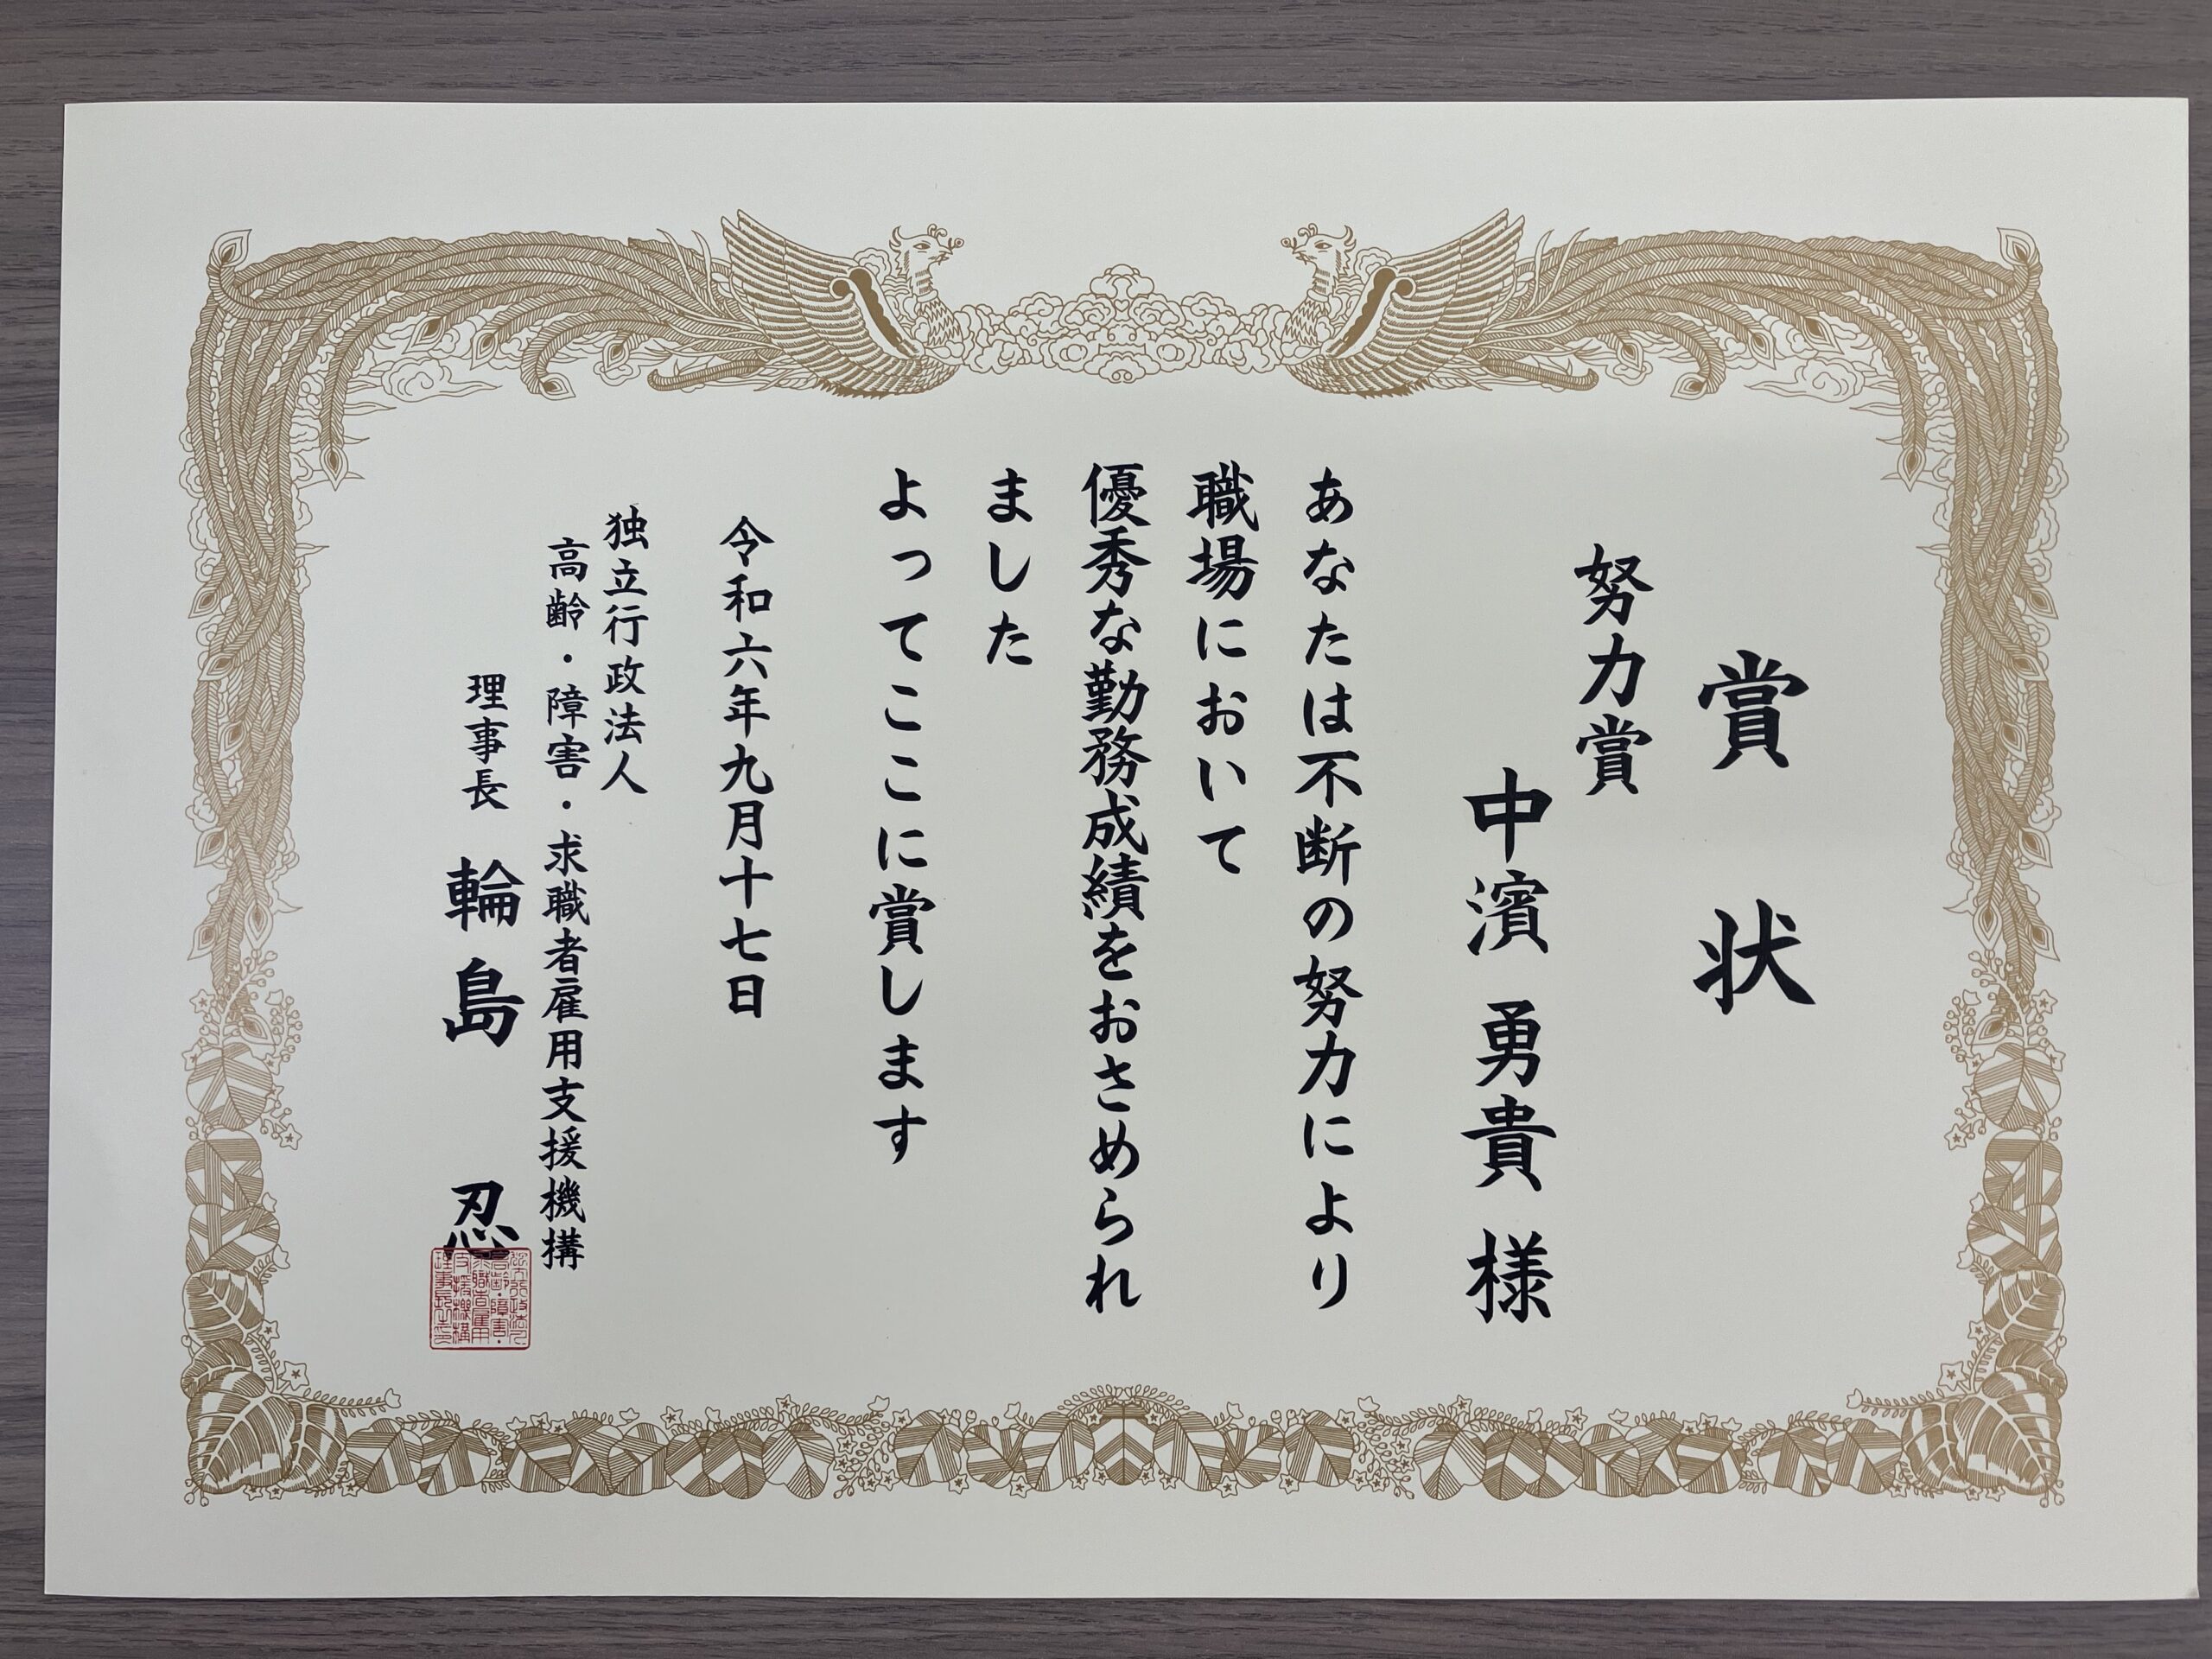 賞状
努力賞
中濱 勇貴 様
あなたは不断の努力により
職場において
優秀な勤務成績をおさめられ
ました
よってここに賞します
令和六年九月十七日
独立行政法人
高齢・障害・求職者雇用支援機構
理事長 輪島 忍
独立行政法人
高齢・障害・
求職者雇用
支援機構
理事長之印